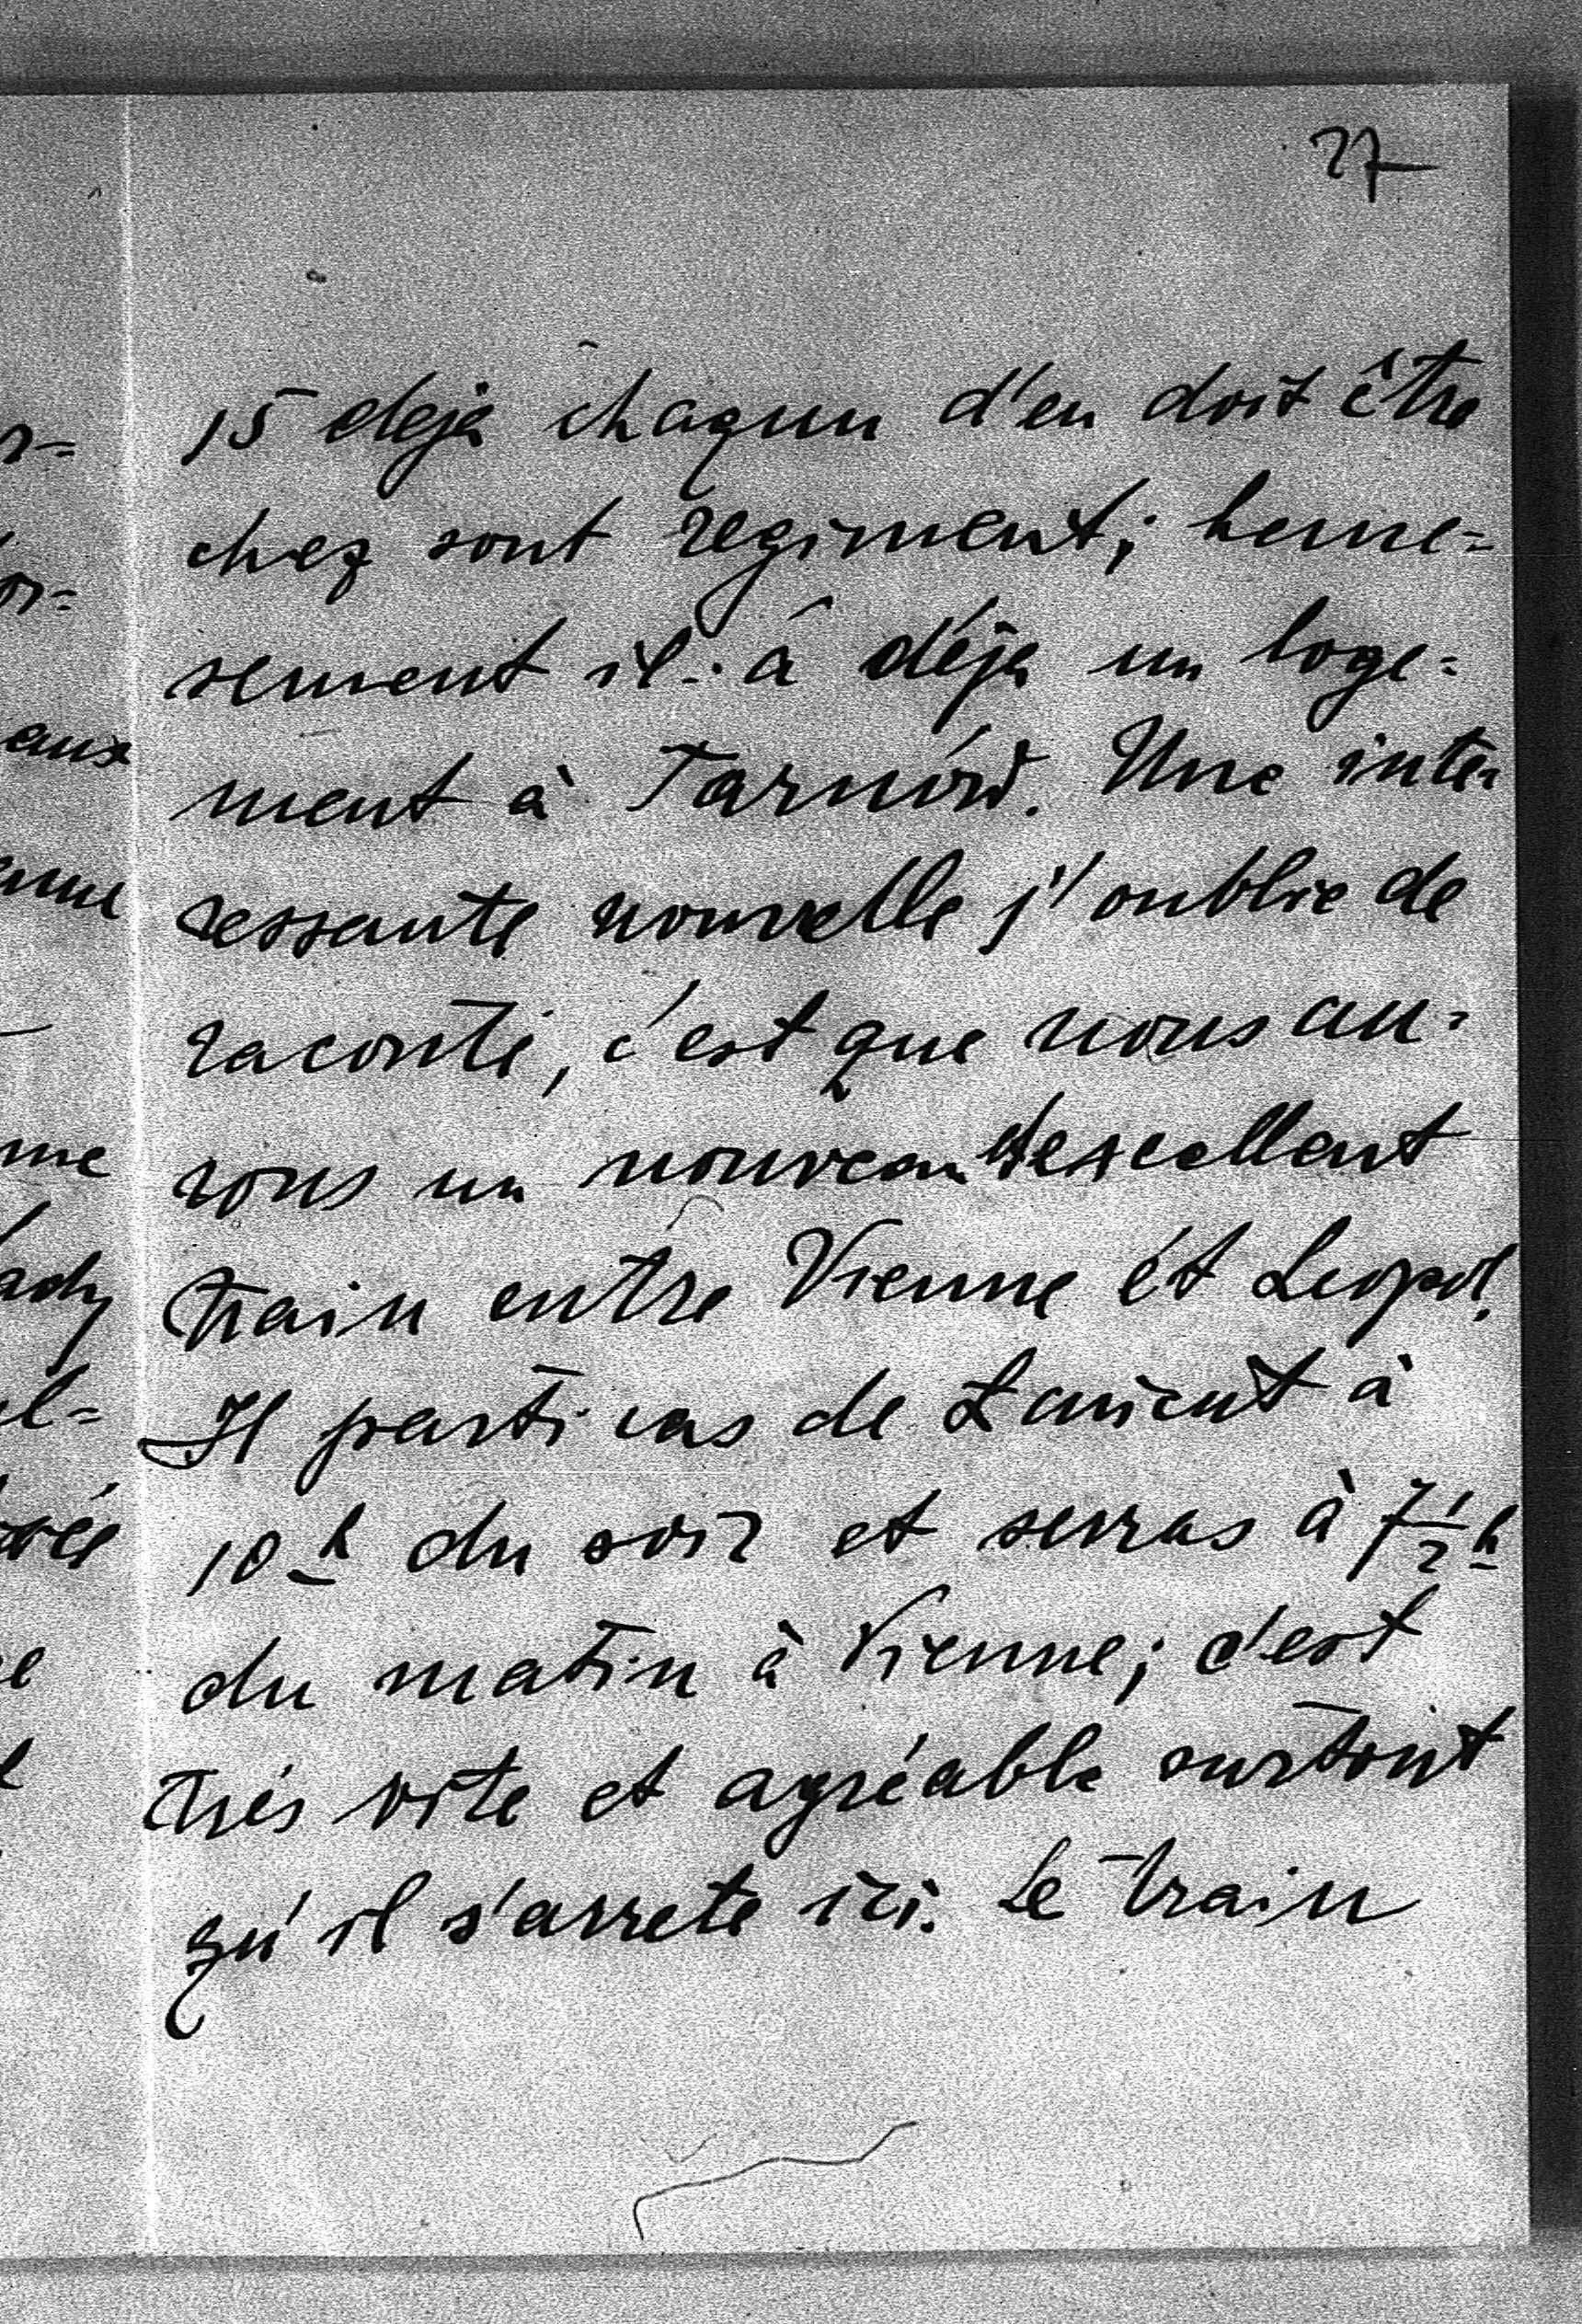 27
15 dejà chaqun d'eu doit être
chez sont regiment; heure=
sement il à déja un loge=
ment à Tarnów. Une inté-
ressante nouvelle j'oublie de
raconté, c'est que nous au-
rons un nouveau exscellent
train entre Vienne ét Leopol.
Il partiras de Łanicut à
10 h du soir et serras à 7 1/2 h
du matin à Vienne; c'est
trés vite et agréable surtout
qu'il s'arrete ici. Le train